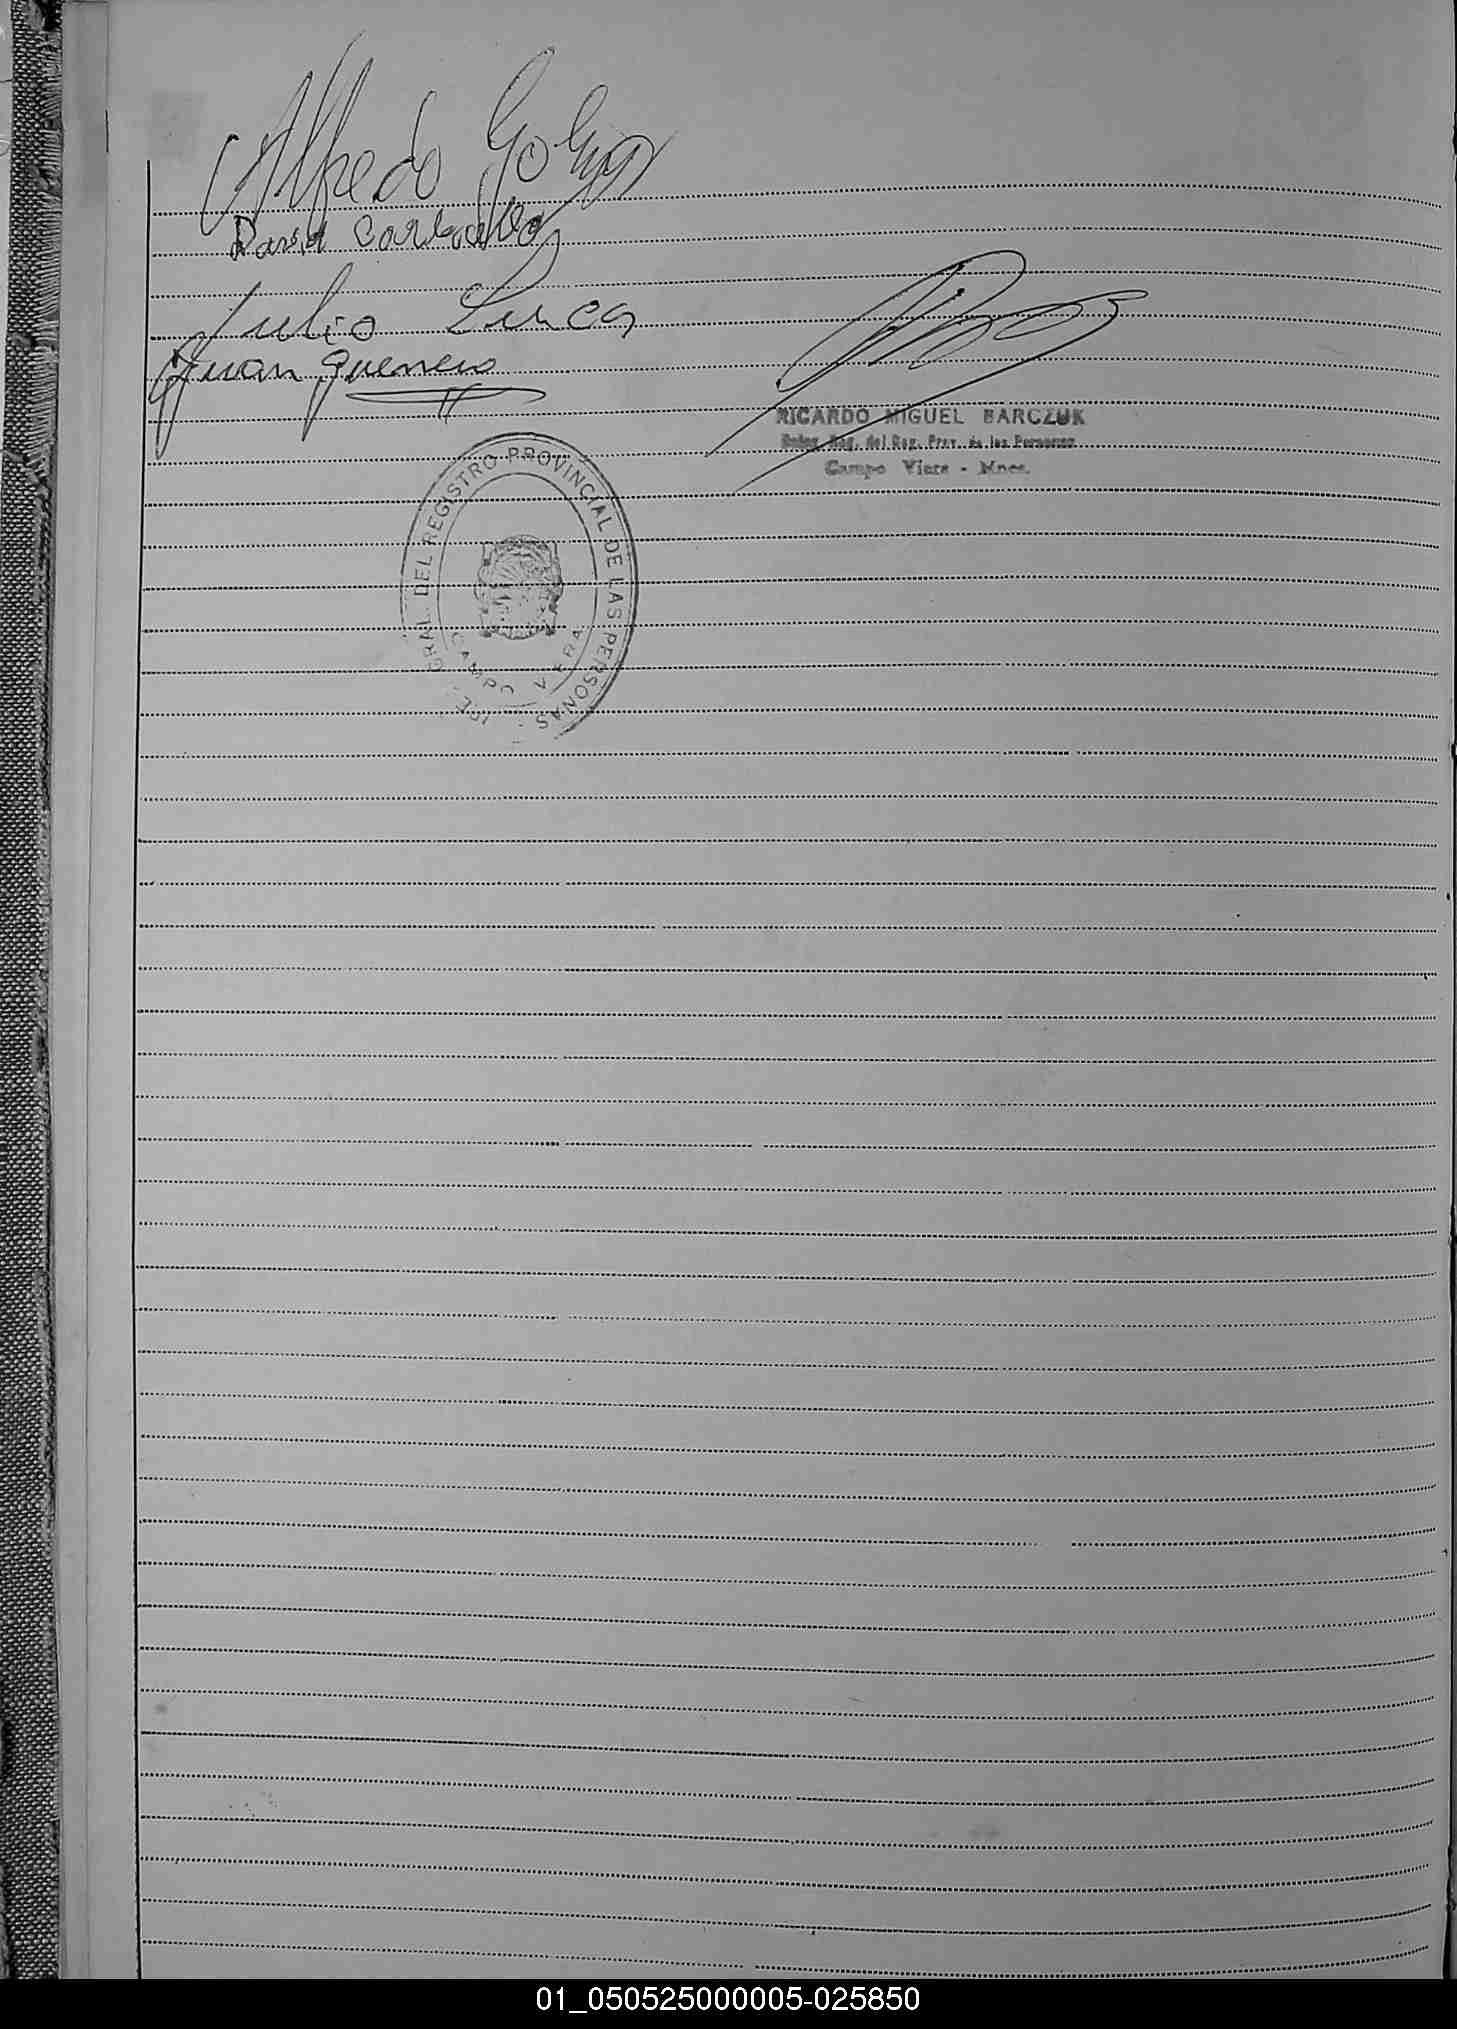 Alfredo
David Carballo
Julio Luca
Juan guerrero
RICARDO MIGUEL BARCZUK
Deleg. Reg. del Reg. Prov. de las Personas
Campo Viera - Mnes.
GRAL. DEL REGISTRO PROVINCIAL DE LAS PERSONAS
CAMPO VIERA
01_050525000005-025850